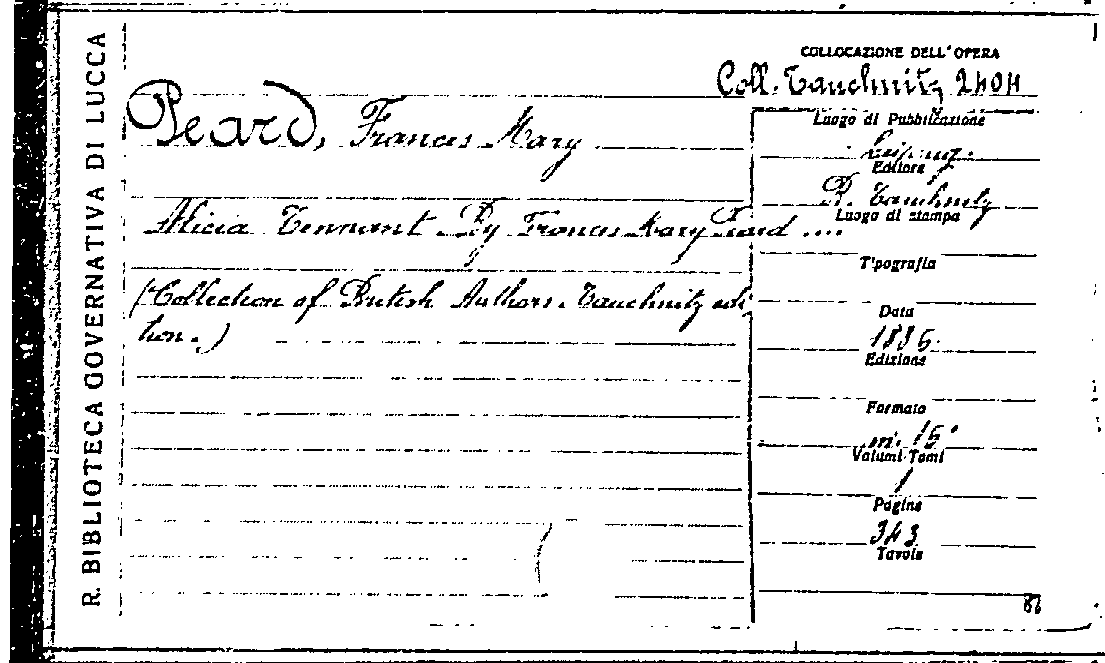 R. BIBLIOTECA GOVERNATIVA DI LUCCA
COLLOCAZIONE DELL'OPERA
Coll. Tauchnitz 2404
Peard, Frances Mary
Alicia Tennant. By Frances Mary Peard ....
(Collection of British Authors. Tauchnitz edi-
tion.)
Luogo di Pubblicazione
Leipzig.
Editore
B. Tauchnitz
Luogo di stampa
Tipografia
Data
1886.
Edizione
Formato
m. 16°
Volumi-Tomi
1
Pagine
343
Tavole